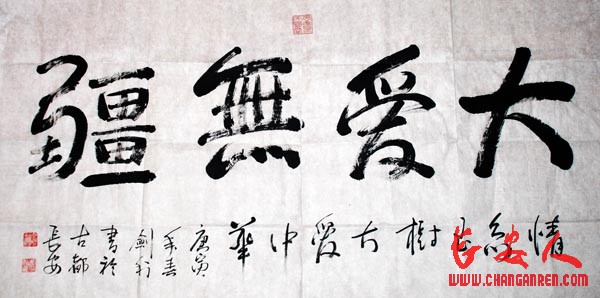 大爱無疆
情系玉樹大爱中華
庚寅
年春
書於
古都
長安
长安人
WWW.CHANGANREN.COM